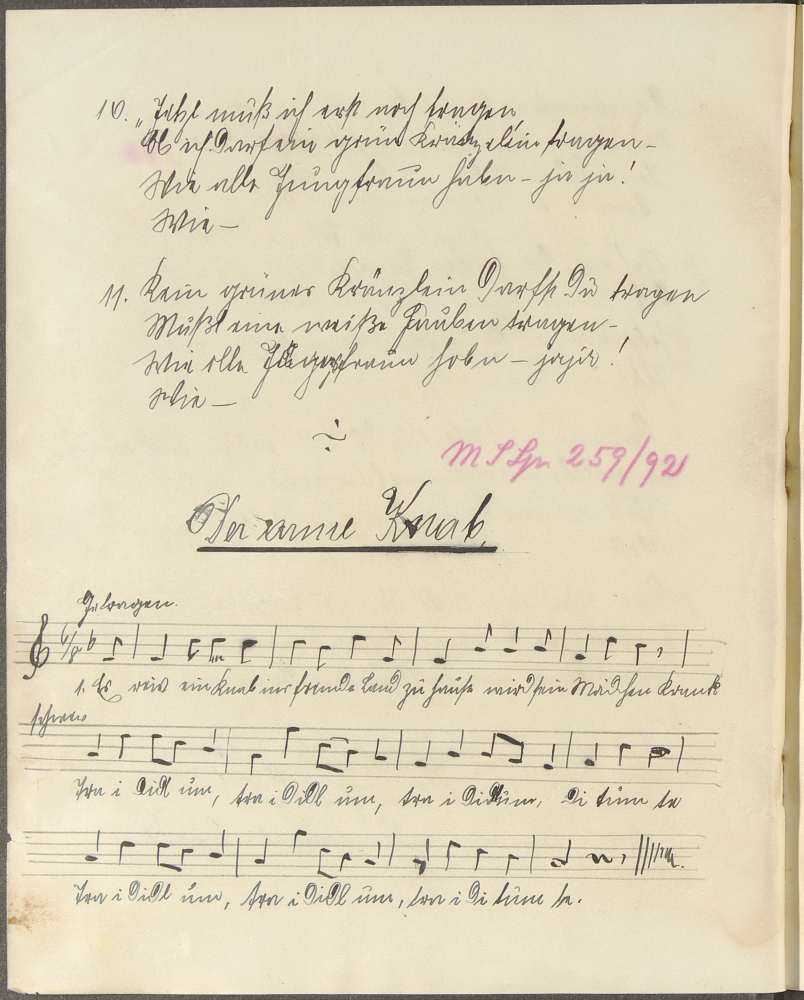 10. „Jetzt muß ich erst noch fragen,
Ob ich Darf ein grün Kränzelein tragen –
Wie alle Jungfraun habn – ja ja!
Wie –
11. Kein grünes Kränzlein Darfst Du tragen
Mußt eine weiße Hauben tragen –
Wie alle Jungfraun habn – jaja!
Wie –
M S Sp 259/92
Der arme Knab.
Getragen.
6/8
1. Es reis ein Knab ins fremde Land zu hause wird sein Mädchen Krank
schwer
Tra i Didl um, tra i Didl um, tra i Didlum, Di tum te
Tra i Didl um, tra i Didl um, tra i Di tum te.